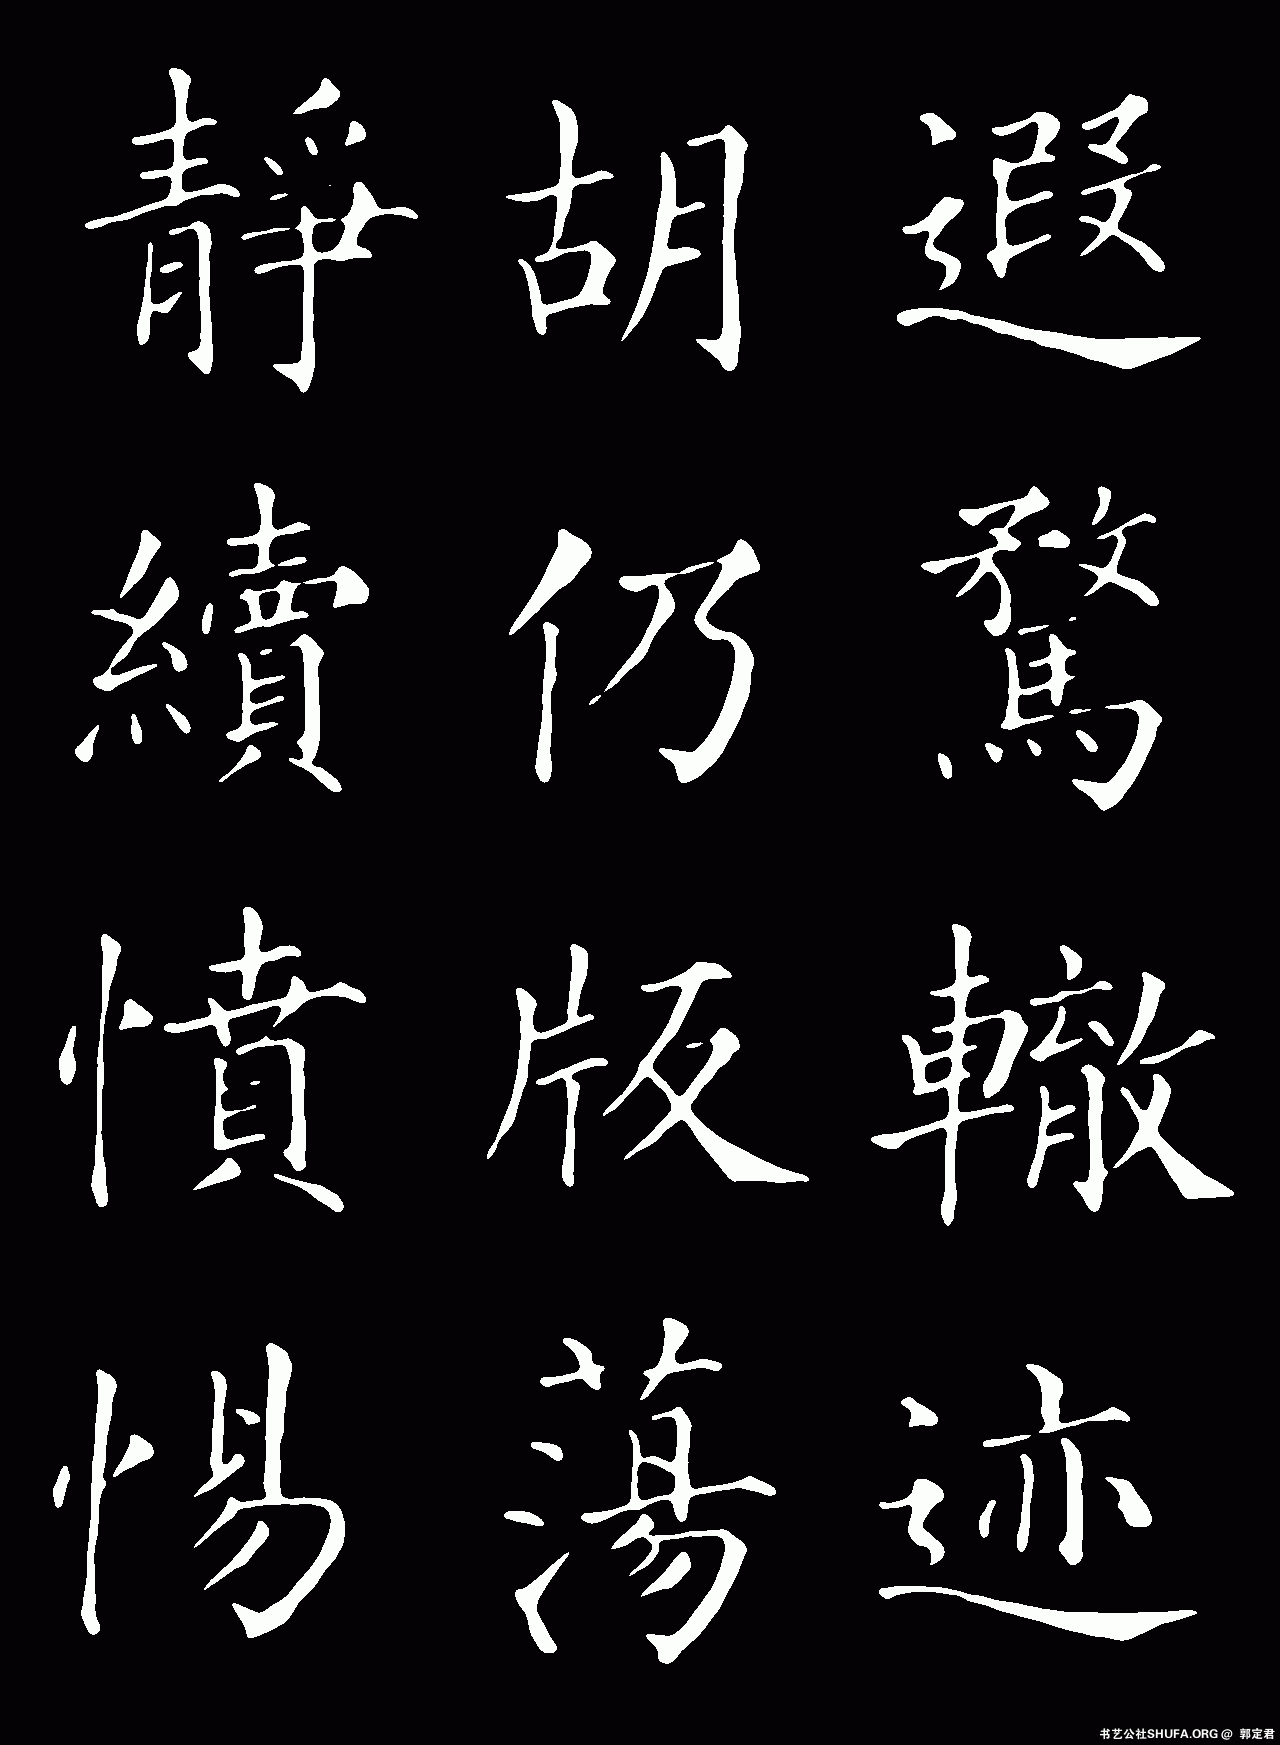 遐騖轍迹
胡仍版蕩
靜續憤惕
书艺公社SHUFA.ORG @ 郭定君